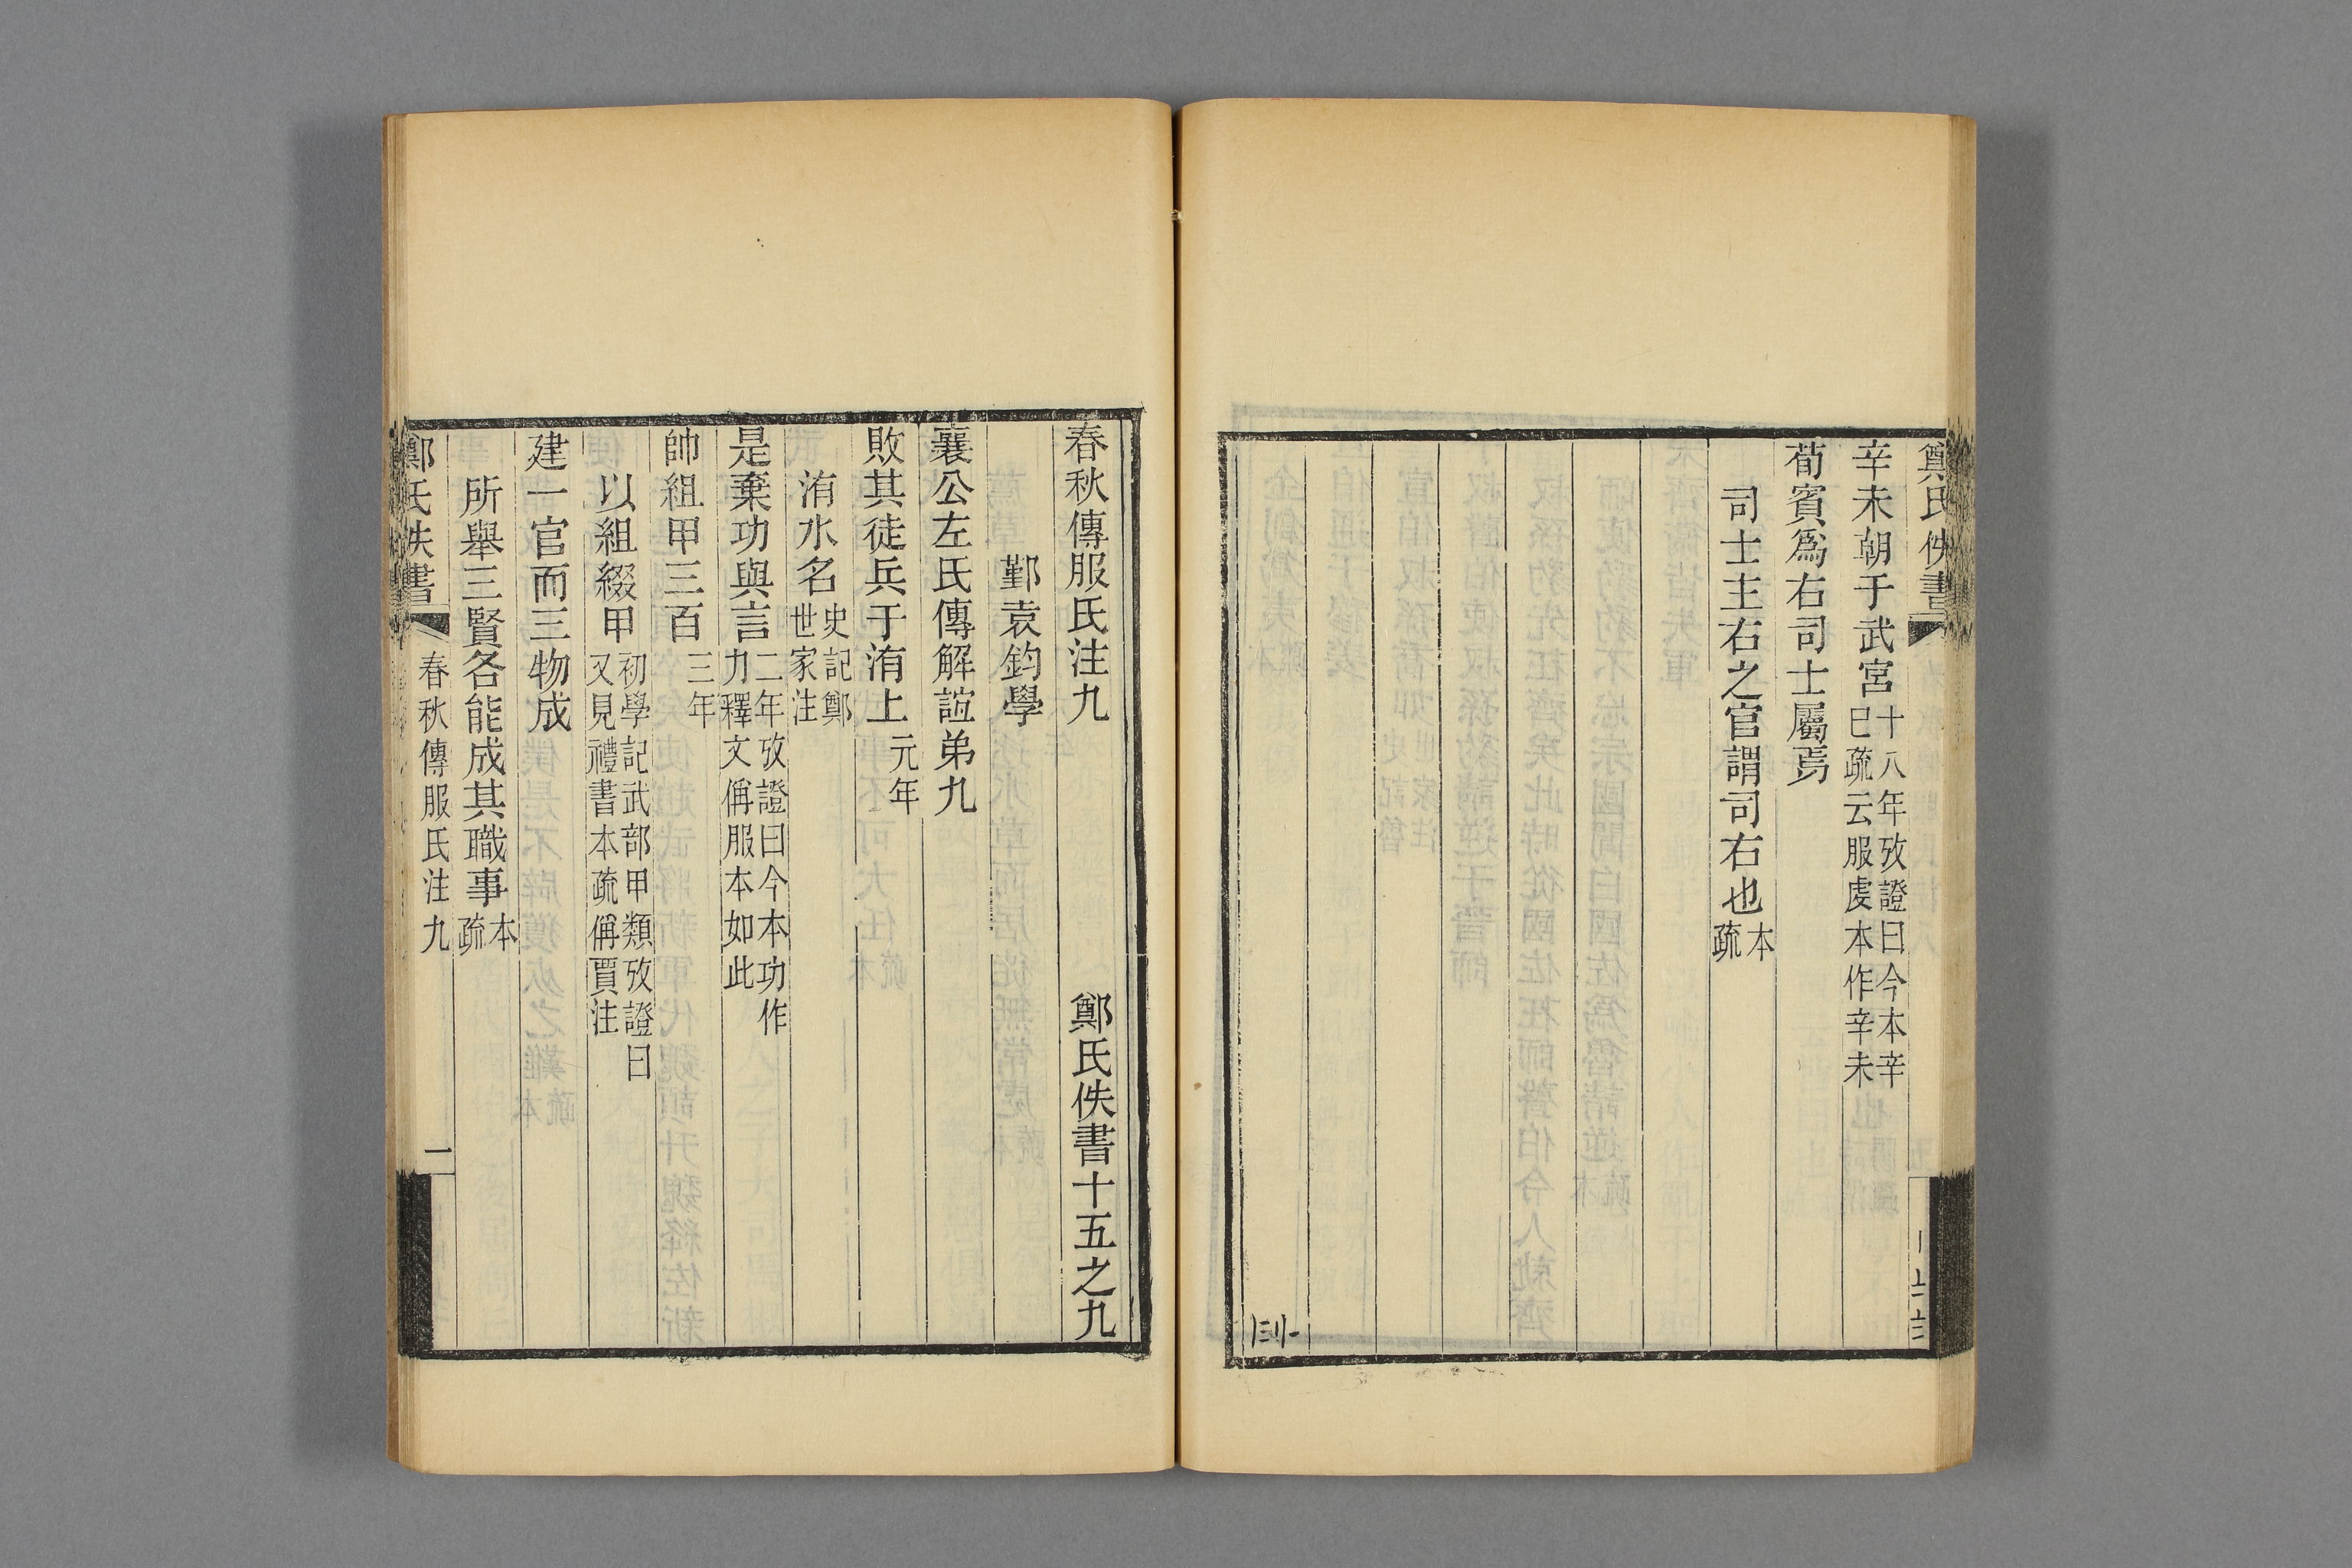 鄭氏佚書
辛未朝于武宮十八年攷證曰今本辛巳疏云服虔本作辛未
荀賓爲右司士屬焉
司士主右之官謂司右也本疏
春秋傳服氏注九 鄭氏佚書十五之九
鄞袁鈞學
襄公左氏傳解誼弟九
敗其徒兵于洧上元年
洧水名史記鄭世家注
是棄功與言二年攷證曰今本功作力釋文偁服本如此
帥組甲三百三年
以組綴甲初學記武部甲類攷證曰又見禮書本疏偁賈注
建一官而三物成
所舉三賢各能成其職事本疏
鄭氏佚書 春秋傳服氏注九 一